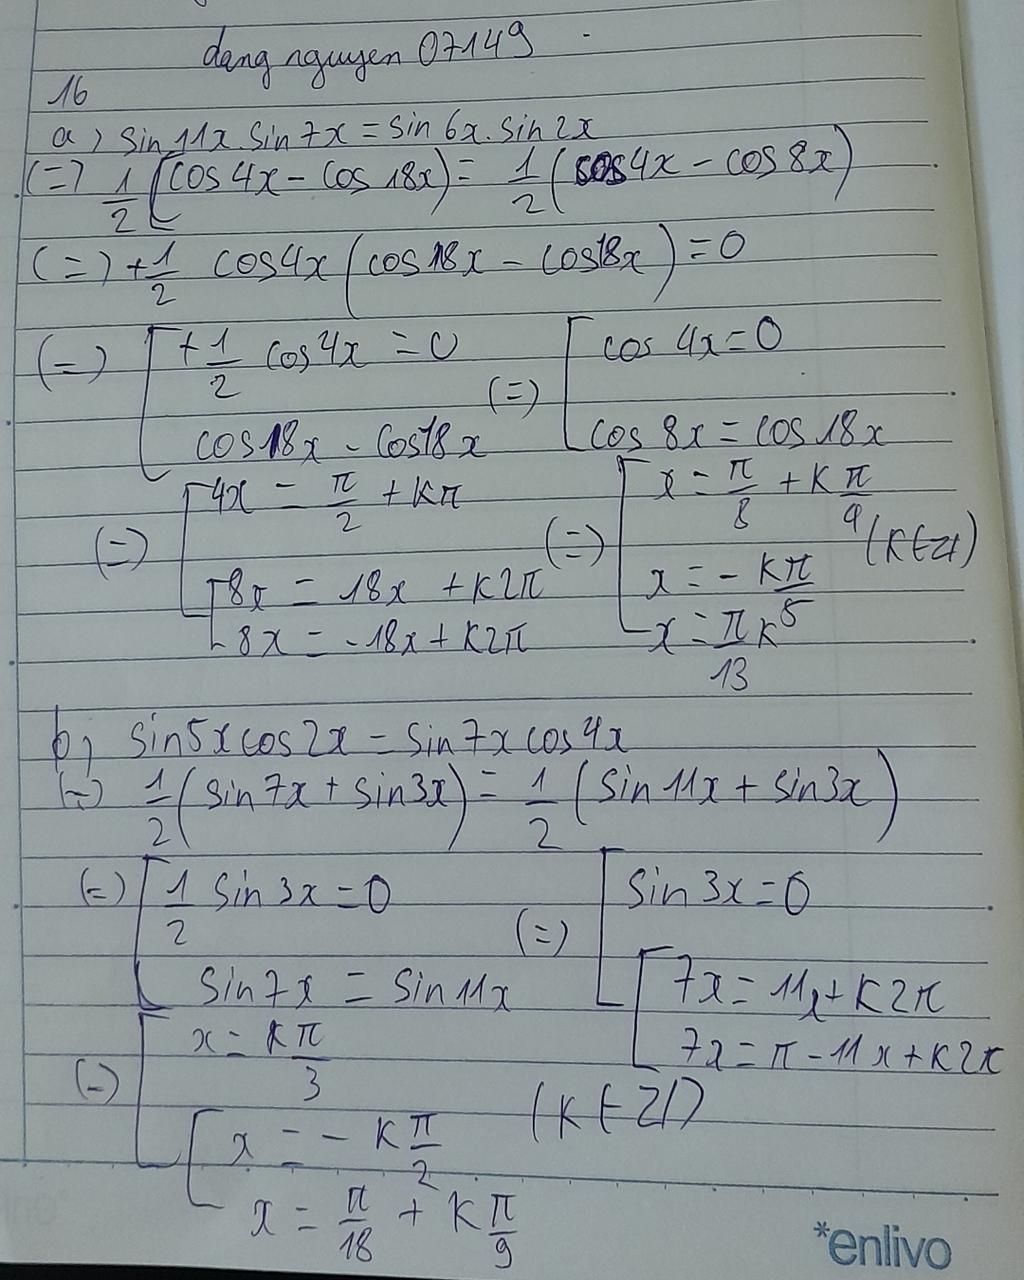 dang nguyen 07149
16
a) sin 11x.sin 7x = sin 6x.sin 2x
(=) 1/2 (cos 4x - cos 18x) = 1/2 (cos 4x - cos 8x)
(=) + 1/2 cos 4x (cos 18x - cos 18x) = 0
(=) [ + 1/2 cos 4x = 0 (=) [ cos 4x = 0
cos 18x - cos 18x cos 8x = cos 18x
(=) [ 4x = π/2 + kπ (=) [ x = π/8 + k π/4 (k ∈ Z)
[ 8x = 18x + k2π x = - kπ/5
8x = -18x + k2π x = π/13 k
b, sin 5x cos 2x = sin 7x cos 4x
(=) 1/2 (sin 7x + sin 3x) = 1/2 (sin 11x + sin 3x)
(=) [ 1/2 sin 3x = 0 (=) [ sin 3x = 0
sin 7x = sin 11x [ 7x = 11x + k2π
7x = π - 11x + k2π
(=) [ x = k π/3
[ x = - k π/2 (k ∈ Z)
x = π/18 + k π/9
*enlivo